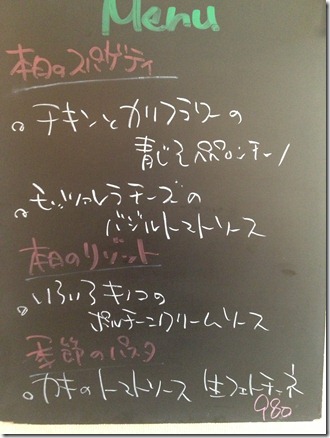 Menu
本日のスパゲティ
。チキンとカリフラワーの
青じそペペロンチーノ
。モッツァレラチーズの
バジルトマトソース
本日のリゾット
。いろいろキノコの
ポルチーニクリームソース
季節のパスタ
。カキのトマトソース 生フェトチーネ
980